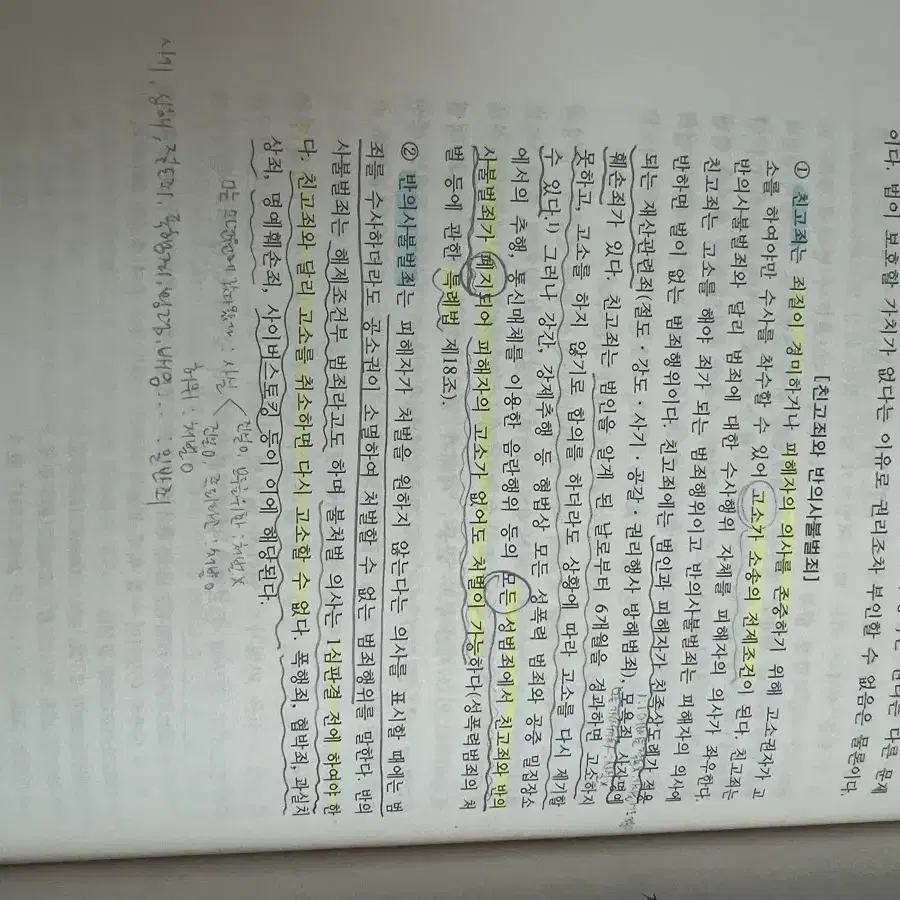 이다. 법이 보호할 가치가 없다는 이유로 권리조차 부인할 수 없음은 물론이다.
[친고죄와 반의사불벌죄]
① 친고죄는 죄질이 경미하거나 피해자의 의사를 존중하기 위해 고소권자가 고
소를 하여야만 수사를 착수할 수 있어 고소가 소송의 전제조건이 된다. 친고죄는
반의사불벌죄와 달리 범죄에 대한 수사행위 자체를 피해자의 의사가 좌우한다.
친고죄는 고소를 해야 죄가 되는 범죄행위이고 반의사불벌죄는 피해자의 의사에
반하면 벌이 없는 범죄행위이다. 친고죄에는 범인과 피해자가 친족상도례가 적용
되는 재산관련죄(절도·강도·사기·공갈·권리행사 방해범죄), 모욕죄, 사자명예
훼손죄가 있다. 친고죄는 범인을 알게 된 날로부터 6개월을 경과하면 고소하지
못하고, 고소를 하지 않기로 합의를 하더라도 상황에 따라 고소를 다시 제기할
수 있다.1) 그러나 강간, 강제추행 등 형법상 모든 성폭력 범죄와 공중 밀집장소
에서의 추행, 통신매체를 이용한 음란행위 등의 모든 성범죄에서 친고죄와 반의
사불벌죄가 폐지되어 피해자의 고소가 없어도 처벌이 가능하다(성폭력범죄의 처
벌 등에 관한 특례법 제18조).
② 반의사불벌죄는 피해자가 처벌을 원하지 않는다는 의사를 표시할 때에는 범
죄를 수사하더라도 공소권이 소멸하여 처벌할 수 없는 범죄행위를 말한다. 반의
사불벌죄는 해제조건부 범죄라고도 하며 불처벌 의사는 1심판결 전에 하여야 한
다. 친고죄와 달리 고소를 취소하면 다시 고소할 수 없다. 폭행죄, 협박죄, 과실치
상죄, 명예훼손죄, 사이버스토킹 등이 이에 해당된다.
사실 < 진실O, 처벌X
진실O, 처벌O
허위 : 처벌O
사기, 횡령, 배임 : 일반죄